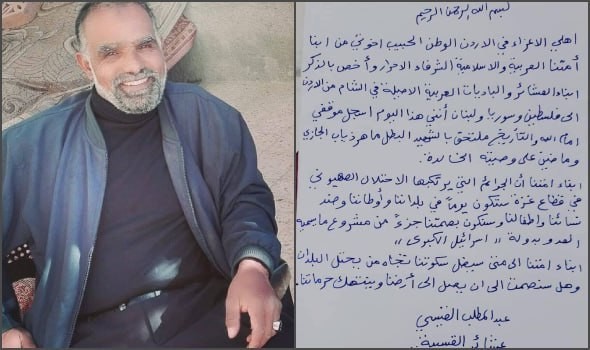 بسم الله الرحمن الرحيم
اهلي الاعزاء في الاردن الوطن الحبيب اخوتي من ابنا
أمتنا العربية والاسلامية الشرفاء الاحرار وأخص بالذكر
ابناء العشائر والباديات العربية الاصيلة في الشام من الاردن
الى فلسطين وسوريا ولبنان أنني هذا اليوم اسجل موقفي
امام الله والتأريخ ملتحق بالشهيد البطل ماهر ذياب الجازي
وماضين على وصيته الخالدة.
ابناء امتنا أن الجرائم التي يرتكبها الاحتلال الصهيوني
في قطاع غزة ستكون يوماً في بلداننا وأوطاننا وضد
نسائنا واطفالنا وستكون بصمتنا جزء من مشروع ما يسميه
العدو بدولة " اسرائيل الكبرى "
ابناء امتنا الى متى سيظل سكوتنا تجاه من يحتل البلدان
وهل سنصمت الى ان يصل الى أرضنا وينتهك حرماتنا.
عبدالمطلب القيسي
عشائر القيسية